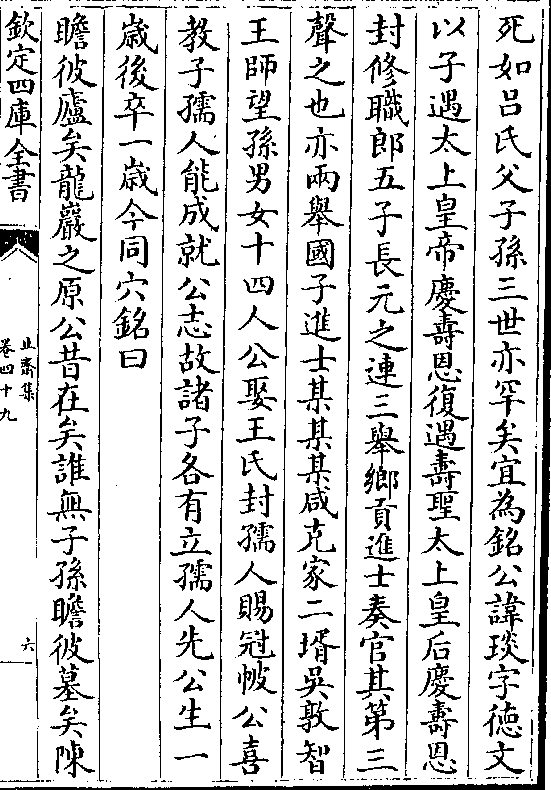 死如呂氏父子孫三世亦罕矣宜為銘公諱琰字徳文
以子遇太上皇帝慶壽恩復遇壽聖太上皇后慶壽恩
封修職郎五子長元之連三舉鄉貢進士奏官其第三
聲之也亦兩舉國子進士某某某咸克家二壻吳敦智
王師望孫男女十四人公娶王氏封孺人賜冠帔公喜
教子孺人能成就公志故諸子各有立孺人先公生一
歲後卒一歲今同穴銘曰
瞻彼廬矣龍巖之原公昔在矣誰無子孫瞻彼墓矣陳
欽定四庫全書
止齋集
卷四十九
六